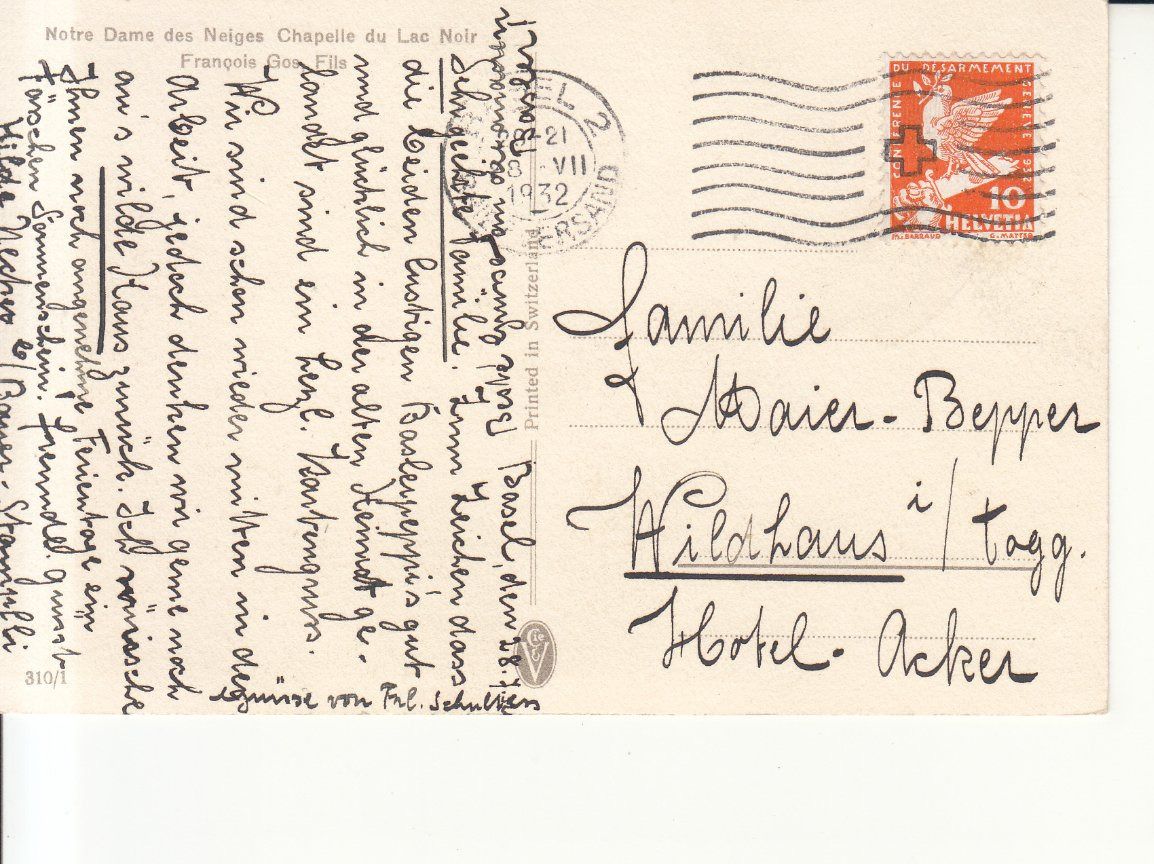 Notre Dame des Neiges Chapelle du Lac Noir
François Gos Fils
BASEL 2
-21
VII
1932
VERSAND
CONFERENCE DU DESARMEMENT GENEVE 1932
10
HELVETIA
M. BARRAUD G. MATTER
Familie
Maier-Bepper
Wildhaus i/Togg.
Hotel-Acker
Printed in Switzerland
Basel, den 18. Juli
Sehr geehrte Familie. Zum Zeichen dass
die beiden lustigen Baslerpeppi's gut
und glücklich in der alten Heimat ge-
landet sind ein herzl. Kartengruss.
Wir sind schon wieder mitten in der
Arbeit, jedoch denken wir gerne noch
an's wilde Haus zurück. Ich wünsche
Ihnen noch angenehme Ferientage ein
Täschen Sonnenschein! Freundl. grüsst
Hilde
Grüsse von Frl. Schulthess
310/1